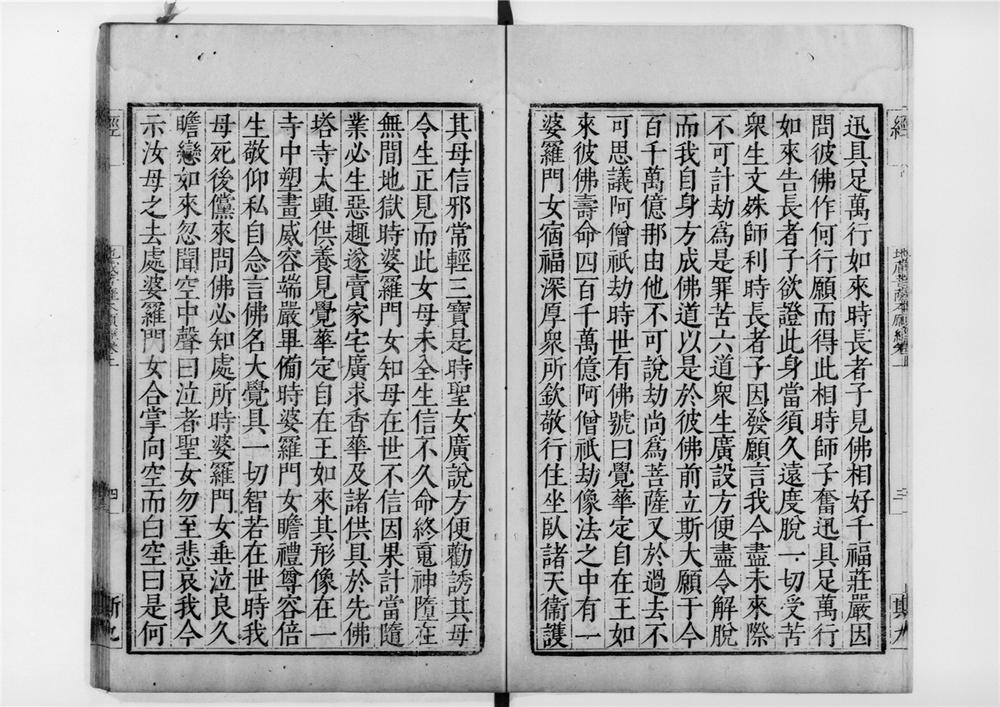 迅具足萬行如來時長者子見佛相好千福莊嚴因
問彼佛作何行願而得此相時師子奮迅具足萬行
如來告長者子欲證此身當須久遠度脫一切受苦
衆生文殊師利時長者子因發願言我今盡未來際
不可計劫爲是罪苦六道衆生廣設方便盡令解脫
而我自身方成佛道以是於彼佛前立斯大願于今
百千萬億那由他不可說劫尚爲菩薩又於過去不
可思議阿僧祇劫時世有佛號曰覺華定自在王如
來彼佛壽命四百千萬億阿僧祇劫像法之中有一
婆羅門女宿福深厚衆所欽敬行住坐臥諸天衞護
其母信邪常輕三寶是時聖女廣說方便勸誘其母
令生正見而此女母未全生信不久命終䰟神墮在
無間地獄時婆羅門女知母在世不信因果計當隨
業必生惡趣遂賣家宅廣求香華及諸供具於先佛
塔寺大興供養見覺華定自在王如來其形像在一
寺中塑畫威容端嚴畢備時婆羅門女瞻禮尊容倍
生敬仰私自念言佛名大覺具一切智若在世時我
母死後儻來問佛必知處所時婆羅門女垂泣良久
瞻戀如來忽聞空中聲曰泣者聖女勿至悲哀我今
示汝母之去處婆羅門女合掌向空而白空曰是何
經
地藏菩薩本願經卷上
三
斯九
經
四
斯九